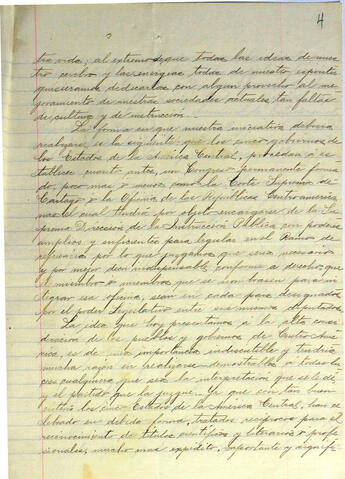 4
tra vida, al extremo de que todas las ideas de nues
tro cerebro y las energías todas de nuestro espíritu
quisiéramos dedicarlas con algun provecho al me
joramiento de nuestras sociedades actuales, tan faltas
de cultura y de instrucción.
La forma en que nuestra iniciativa debiera
realizarse, es la siguiente: que los cinco gobiernos de
los Estados de la América Central, procedan á es
tablecer cuanto antes, un Congreso permanente forma
do, poco mas ó menos como la Corte Suprema de
Cartago ó la Oficina de las Repúblicas Centroamerica
nas el cual tendría por objeto encargarse de la Su
prema Dirección de la Instrucción Pública con poderes
amplios y suficientes para legislar en el Ramo de
educación por lo que juzgamos que sería necesario
y por mejor decir indispensable, conforme á derecho, que
el miembro ó miembros que se nombrasen para in
tegrar esa oficina, sean en cada país designados
por el poder Legislativo entre sus mismos diputados.
La idea que hoy presentamos á la alta consi
deración de los pueblos y gobiernos de Centro Amé
rica, es de una importancia indiscutible y tendría
mucha razón en realizarse demostrable á todas lu
ces cualquiera que sea la interpretación que se le dé
y el partido que la juzgue. Ya que con tan buen
los cinco Estados de la América Central, han ce
lebrado en debida forma, tratados recíprocos para el
reconocimiento de títulos científicos y literarios ó profe
sionales, mucho mas expédito, importante y